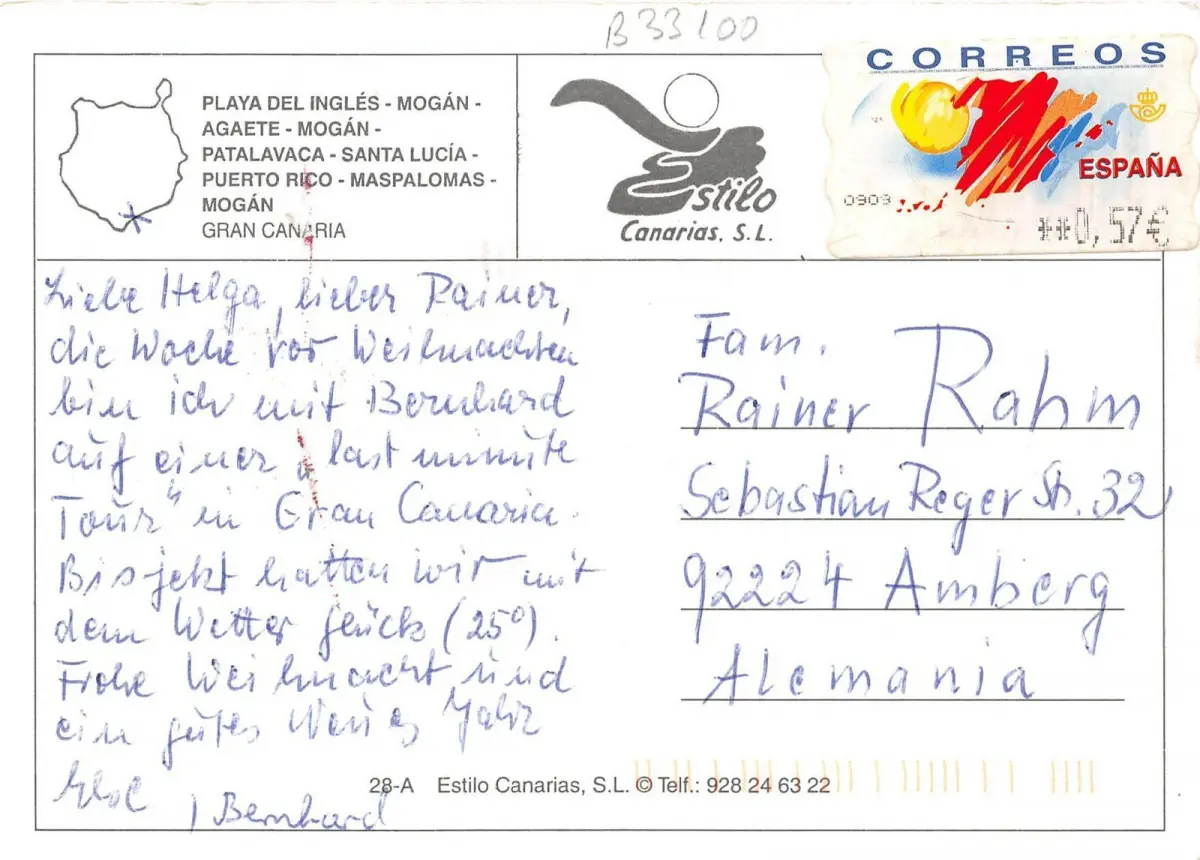 B 33100
PLAYA DEL INGLÉS - MOGÁN -
AGAETE - MOGÁN -
PATALAVACA - SANTA LUCÍA -
PUERTO RICO - MASPALOMAS -
MOGÁN
GRAN CANARIA
Estilo
Canarias, S.L.
CORREOS
ESPAÑA
0909
**0,57€
Liebe Helga, lieber Rainer,
die Woche vor Weihnachten
bin ich mit Bernhard
auf einer „last minute
Tour“ in Gran Canaria.
Bis jetzt hatten wir mit
dem Wetter Glück (25°).
Frohe Weihnacht und
ein gutes Neues Jahr
Bernhard
Fam.
Rainer Rahm
Sebastian Reger Str. 32
92224 Amberg
Alemania
28-A Estilo Canarias, S.L. © Telf.: 928 24 63 22